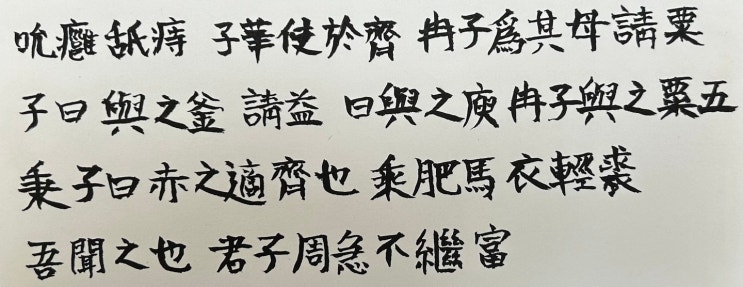 吮癰舐痔 子華使於齊 冉子爲其母請粟
子曰與之釜 請益 曰與之庾冉子與之粟五
秉子曰赤之適齊也 乘肥馬衣輕裘
吾聞之也 君子周急不繼富